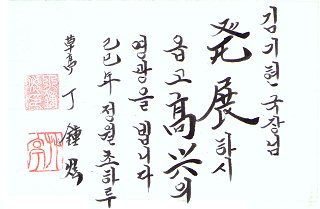 김기현 국장님
発展하시
옵고 高兴의
영광을 빕니다
己巳年 정월 초하루
草亭 丁鍾